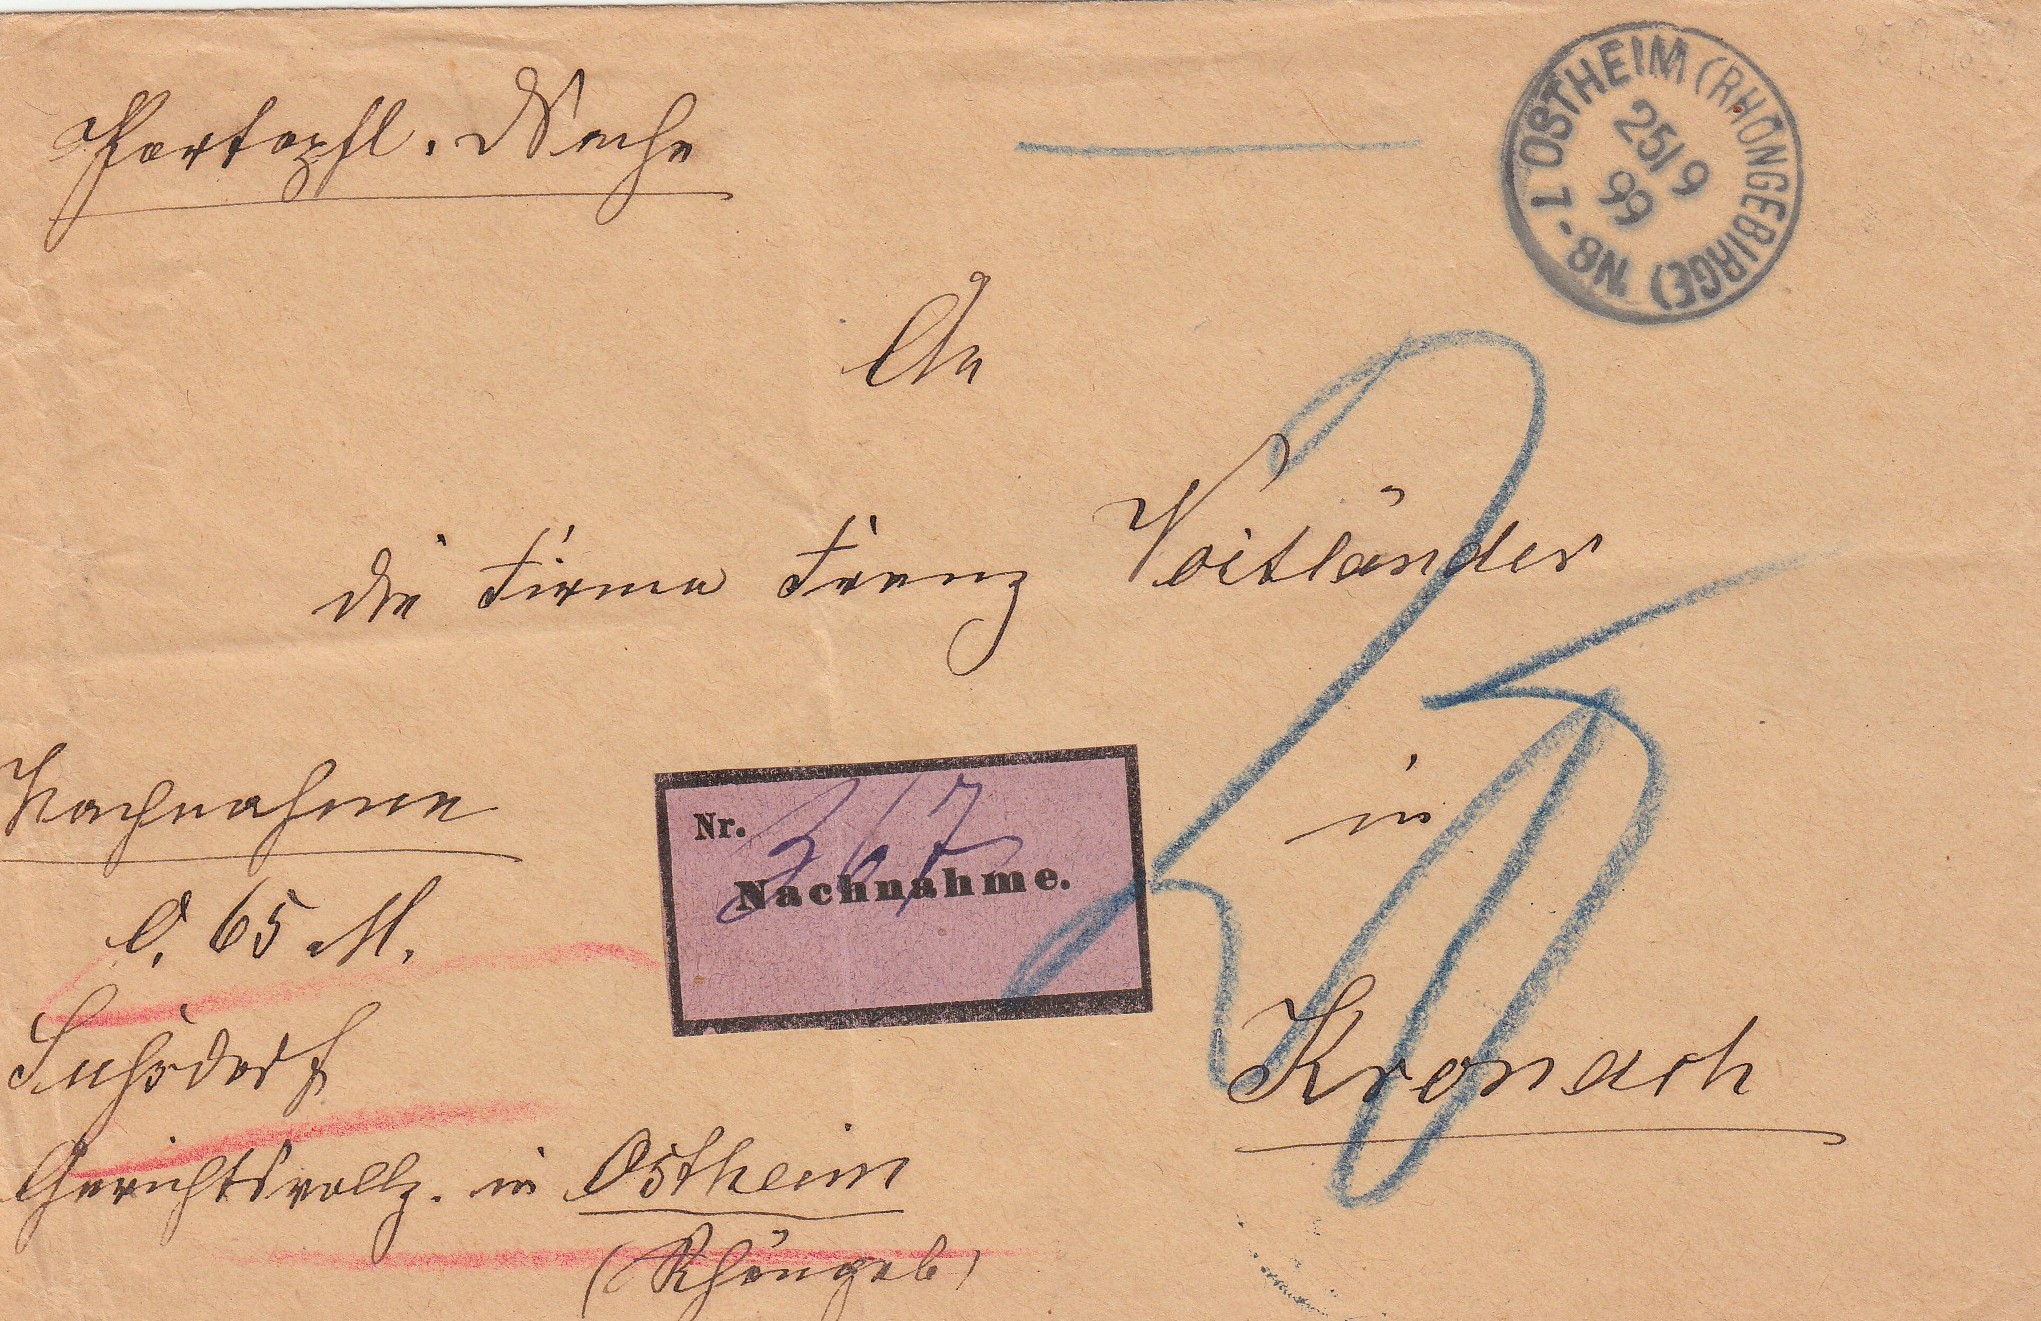 Portopfl. Sache
OSTHEIM (RHÖNGEBIRGE)
25/9
99
8-1 N.
An
die Firma Franz Voitländer
in
Kronach
Nr. 367
Nachnahme.
Nachnahme
0. 65 M.
Gerichtsvollz. in Ostheim
(Rhöngeb)